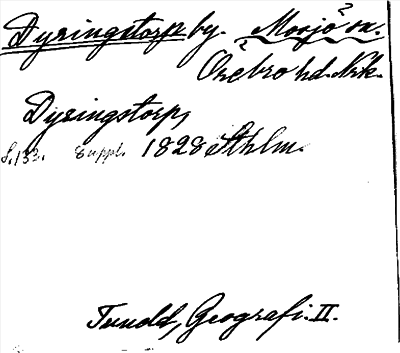 Dyringstorp by. Mosjö? sn.
Örebro? hd. Nrk.
Dyringstorp,
s. 132. Suppl. 1828 Sthlm.
Tuneld, Geografi. II.